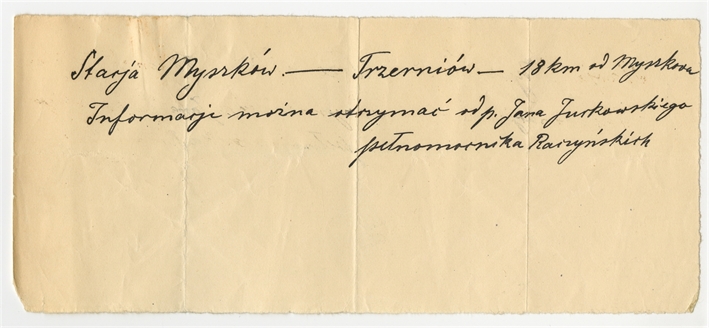 Stacja Myszków — Trzerniów — 18 km od Myszkowa
Informacji można otrzymać od p. Jana Jurkowskiego
pełnomocnika Raczyńskich